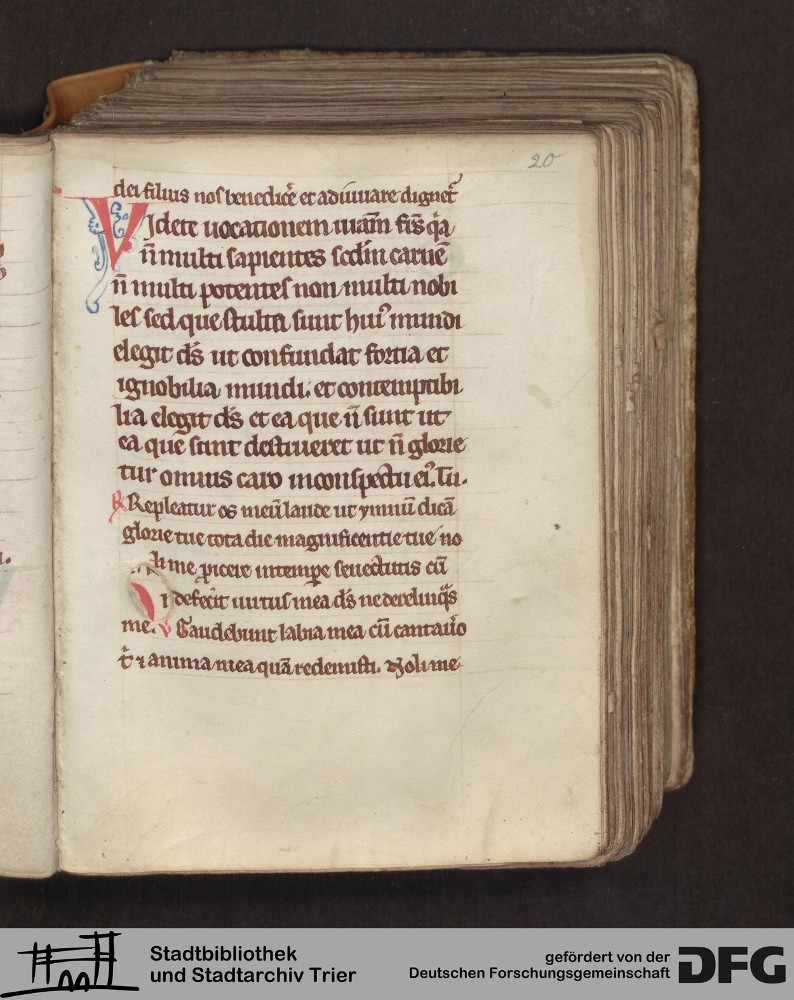 20
dei filius nos benedicẽ et adiuuare dignet᷑
Videte uocationem uuãm fr̃s q̃a
ñ multi sapientes scdm carnẽ
ñ multi potentes non multi nobi
les sed que stulta sunt huiꝰ mundi
elegit dš ut confundat fortia et
ignobilia mundi. et contemptibi
lia elegit dš et ea que ñ sunt ut
ea que sunt destrueret ut ñ glorie
tur omnis caro in conspectu eiꝰ. Tu.
R Repleatur os meũ laude ut ymnũ dicã
glorie tue tota die magnificentie tue no
li me ꝓicere in tempe senectutis cũ
defecit uirtus mea dš ne derelinq̃s
me. V Gaudebunt labia mea cũ cantauo
t̃ ⁊ anima mea quã redemisti. Noli me
Stadtbibliothek
und Stadtarchiv Trier
gefördert von der
Deutschen Forschungsgemeinschaft
DFG